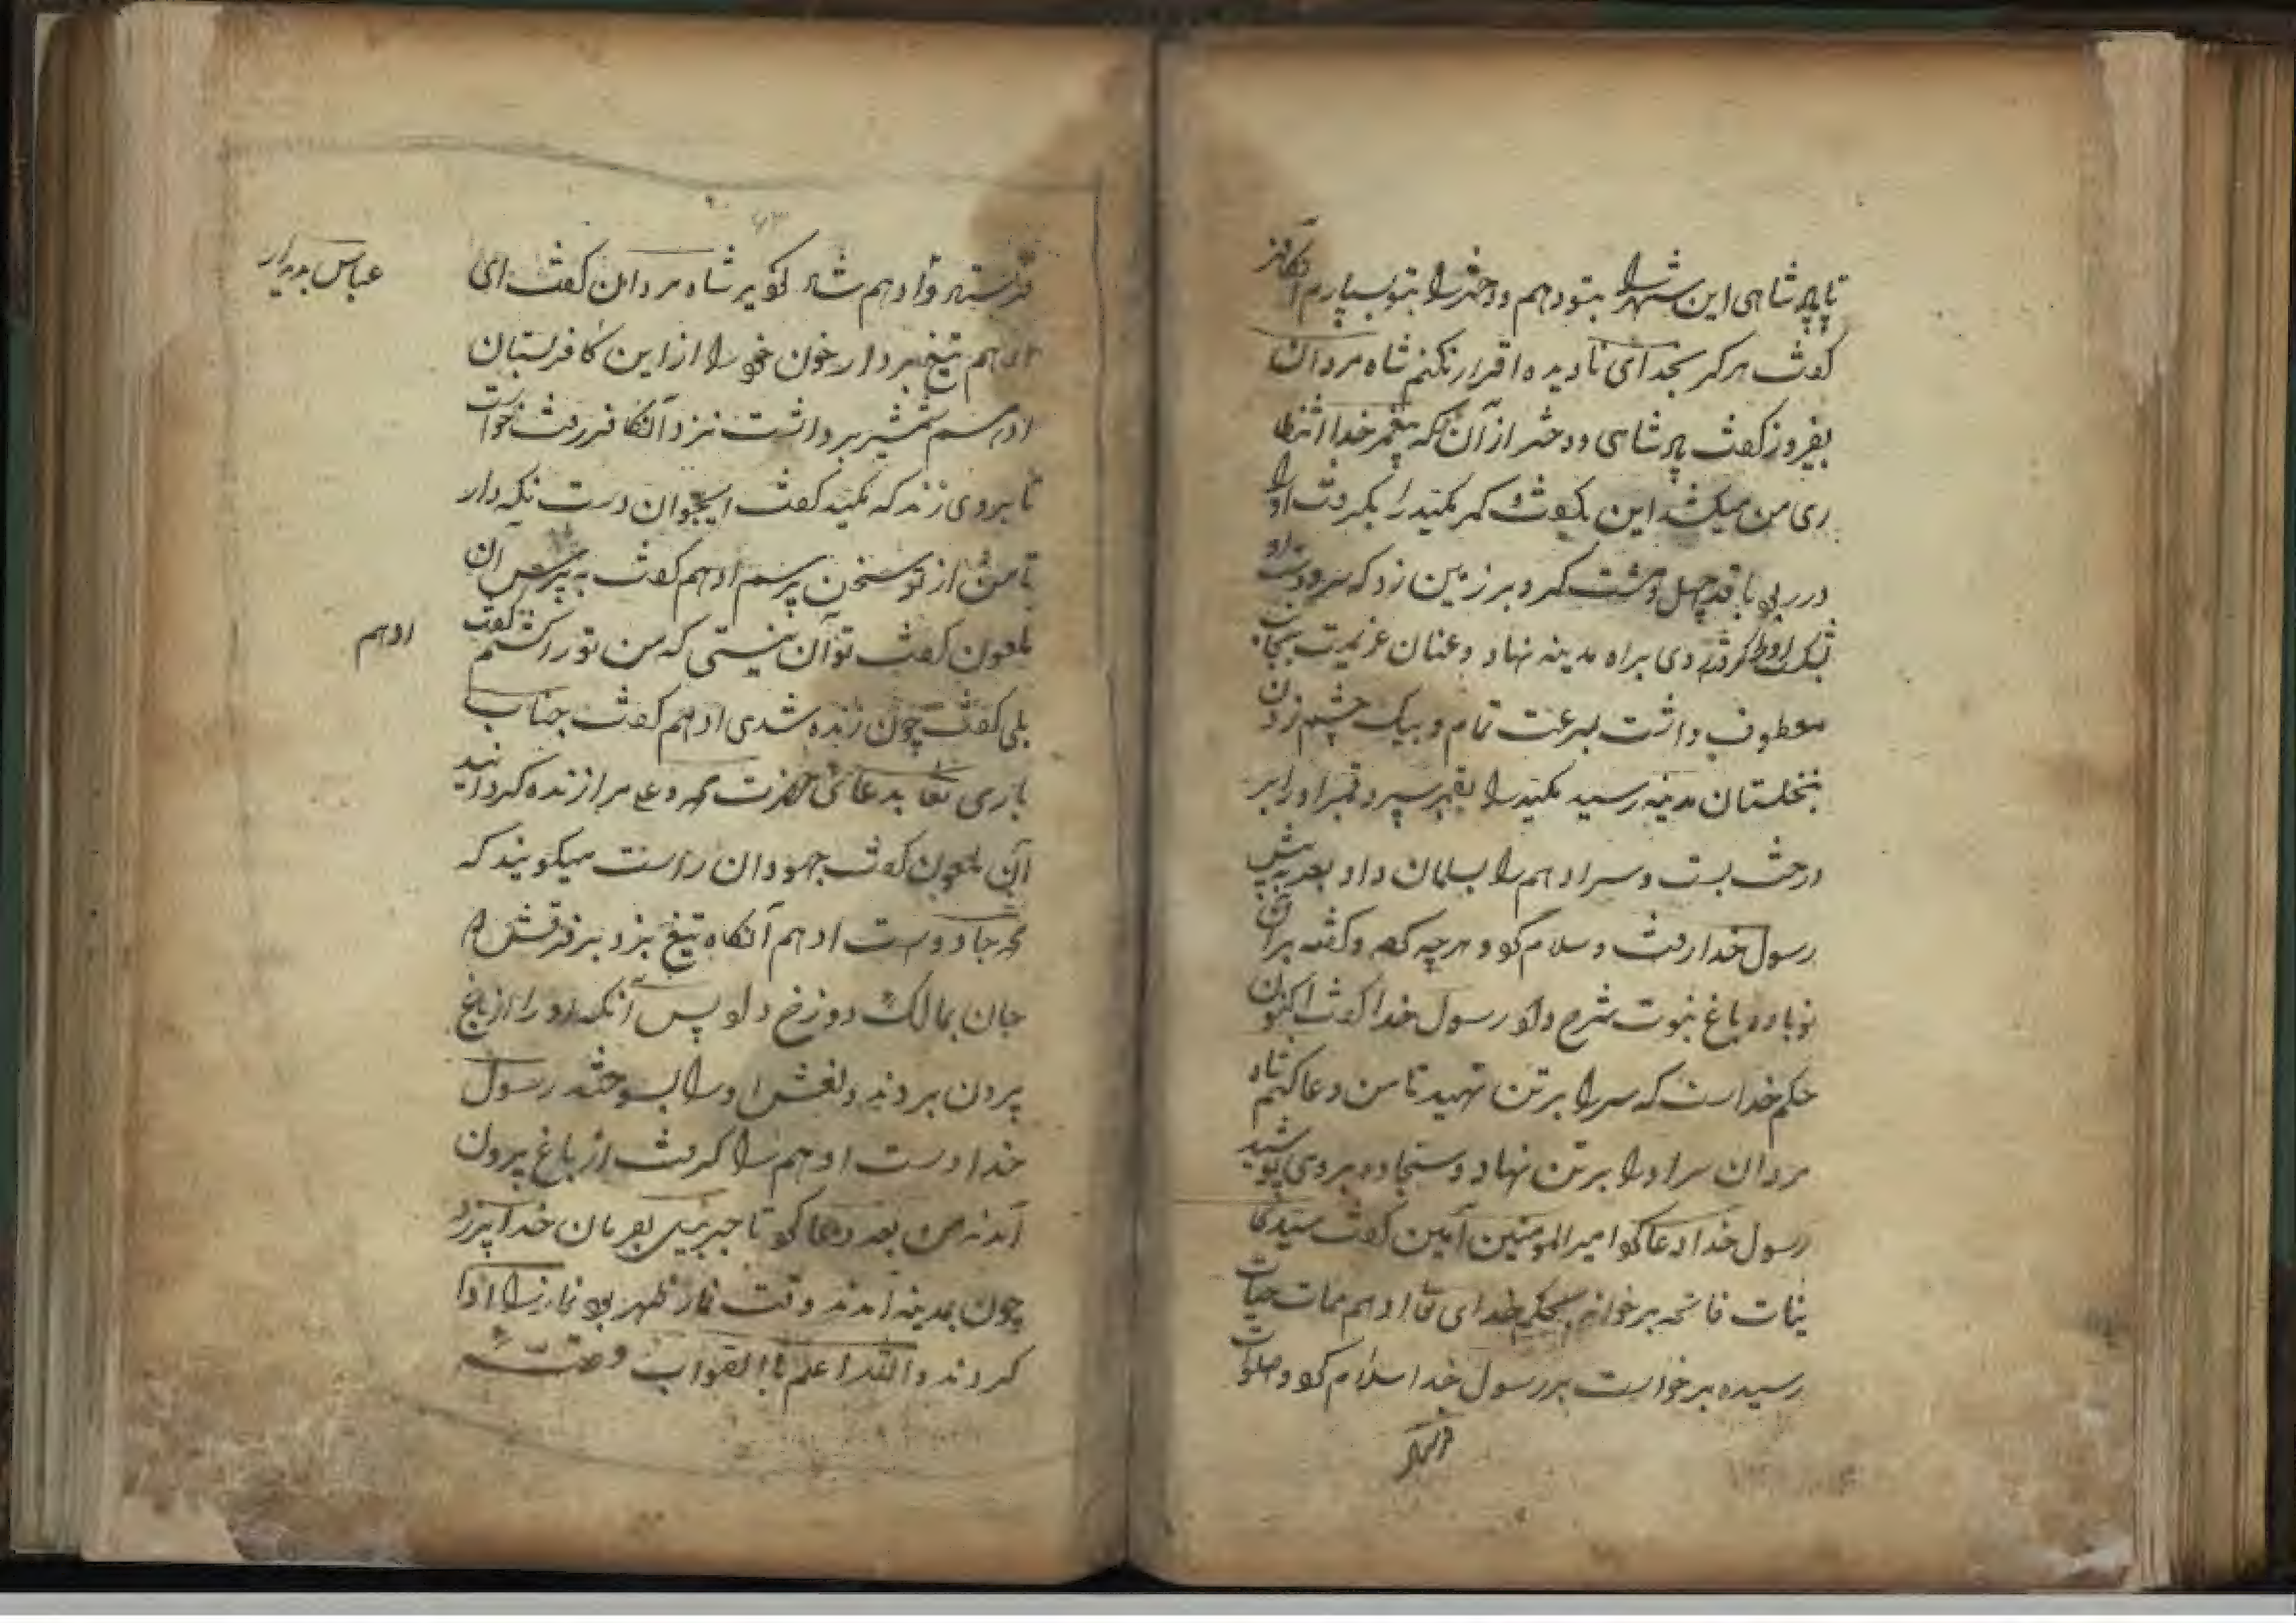 تا پادشاهی این شهر را بتو دهم و دختر را بتو بسپارم آن کافر
گفت هرگز بخدای نادیده اقرار نکنم شاه مردان
بفیروز گفت پادشاهی و دختر از آن تو که پیغمبر خدا انتظا
ری من میکشد این بگفت و کمر مکید را بگرفت او را
در ربو با قد چهل و هشت کرد بر زمین زد که سر و دست
روی براه مدینه نهاد و عنان عزیمت بجانب
معطوف داشت بسرعت تمام و بیک چشم زدن
بنخلستان مدینه رسید مکید را بقنبر سپرد قنبر او را بر
درخت بست و سر ادهم را بسلمان داد بعد به پیش
رسول خدا رفت و سلام کرد و هرچه کرده و گفته بر آن
نوباوه باغ نبوت شرح داد رسول خدا گفت اکنون
حکم خداست که سر را بر تن نهید تا من دعا کنم شاه
مردان سر او را بر تن نهاد و سجاده بر وی پوشید
رسول خدا دعا کرد امیر المومنین آمین گفت سید کا
ینات فاتحه برخواند بحکم خدای تعا ادهم ممات حیات
رسیده برخواست بر رسول خدا سلام کرد و صلوات
فرستاد و ادهم شاد کردید شاه مردان گفت ای
عباس بدیدار
ادهم تیغ بردار خون خود را از این کافر بستان
ادهم شمشیر برداشت نزد آن کافر رفت خواست
تا بروی زند که مکید گفت ایجوان دست نگه دار
تا من از تو سخن پرسم ادهم گفت به پرس آن
ملعون گفت تو آن نیستی که من تو را کشتم گفت
ادهم
بلی گفت چون زنده شدی ادهم گفت جناب
باری تعا بدعائی حضرت محمد و علی مرا زنده کردانید
آن ملعون گفت جهودان راست میکویند که
محمد جادوست ادهم آنکاه تیغ بزد بر فرقش
جان بمالک دوزخ داد پس آنکه او را از باغ
برون بردند و نعش او را بسوختند رسول
خدا دست ادهم را گرفت از باغ برون
آمدند بعد دعا کرد تا جبرئیل بفرمان خدا
چون بمدینه آمدند وقت نماز ظهر بود نماز را ادا
کردند و الله اعلم باالصواب